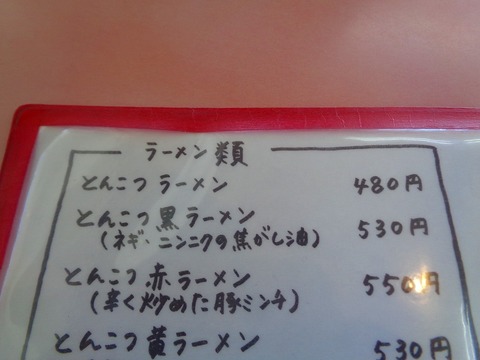 ラーメン類
とんこつラーメン 480円
とんこつ黒ラーメン 530円
(ネギ・ニンニクの焦がし油)
とんこつ赤ラーメン 550円
(辛く炒めた豚ミンチ)
とんこつ黄ラーメン 530円